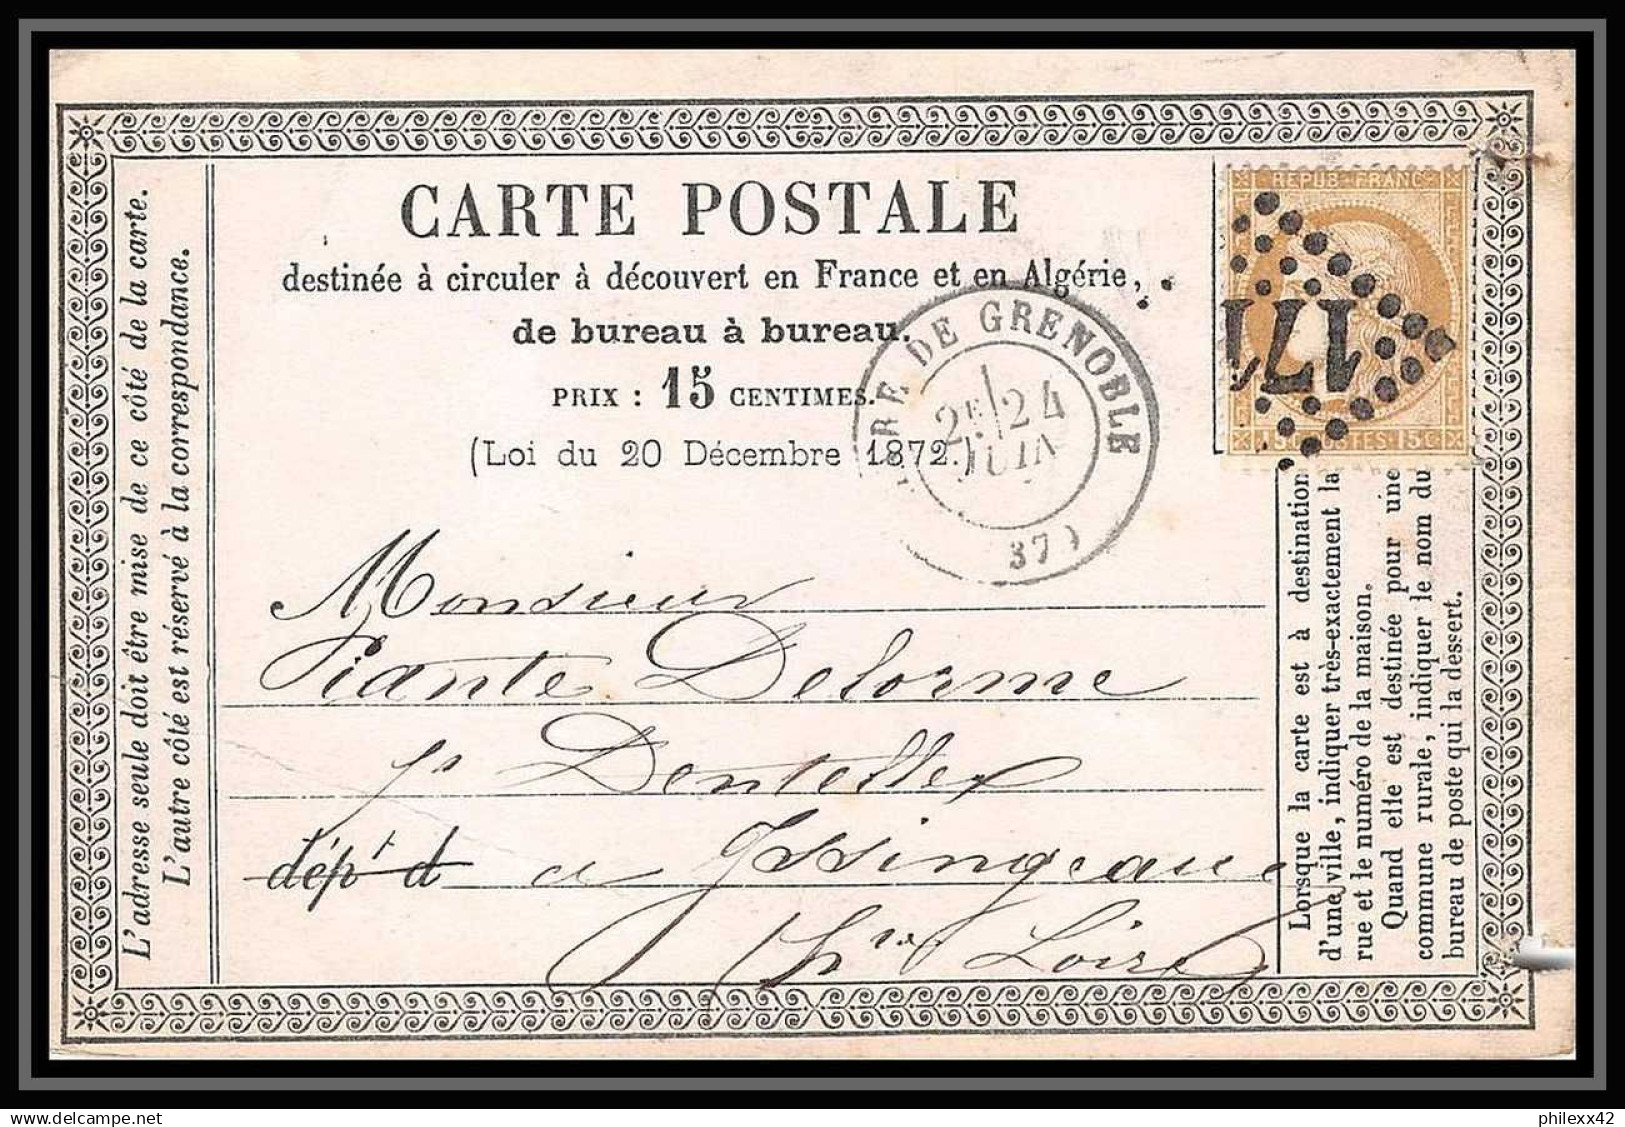 CARTE POSTALE
destinée à circuler à découvert en France et en Algérie,
de bureau à bureau.
PRIX : 15 CENTIMES.
(Loi du 20 Décembre 1872.)
L'adresse seule doit être mise de ce côté de la carte.
L'autre côté est réservé à la correspondance.
REPUB. FRANC.
15C. POSTES 15C.
DE GRENOBLE
2E 24
JUIN
37)
Monsieur
Piante Delorme
ft Dentelles
dépt d a Yssingeaux
(hte Loire)
Lorsque la carte est à destination
d'une ville, indiquer très-exactement la
rue et le numéro de la maison.
Quand elle est destinée pour une
commune rurale, indiquer le nom du
bureau de poste qui la dessert.
philexx42